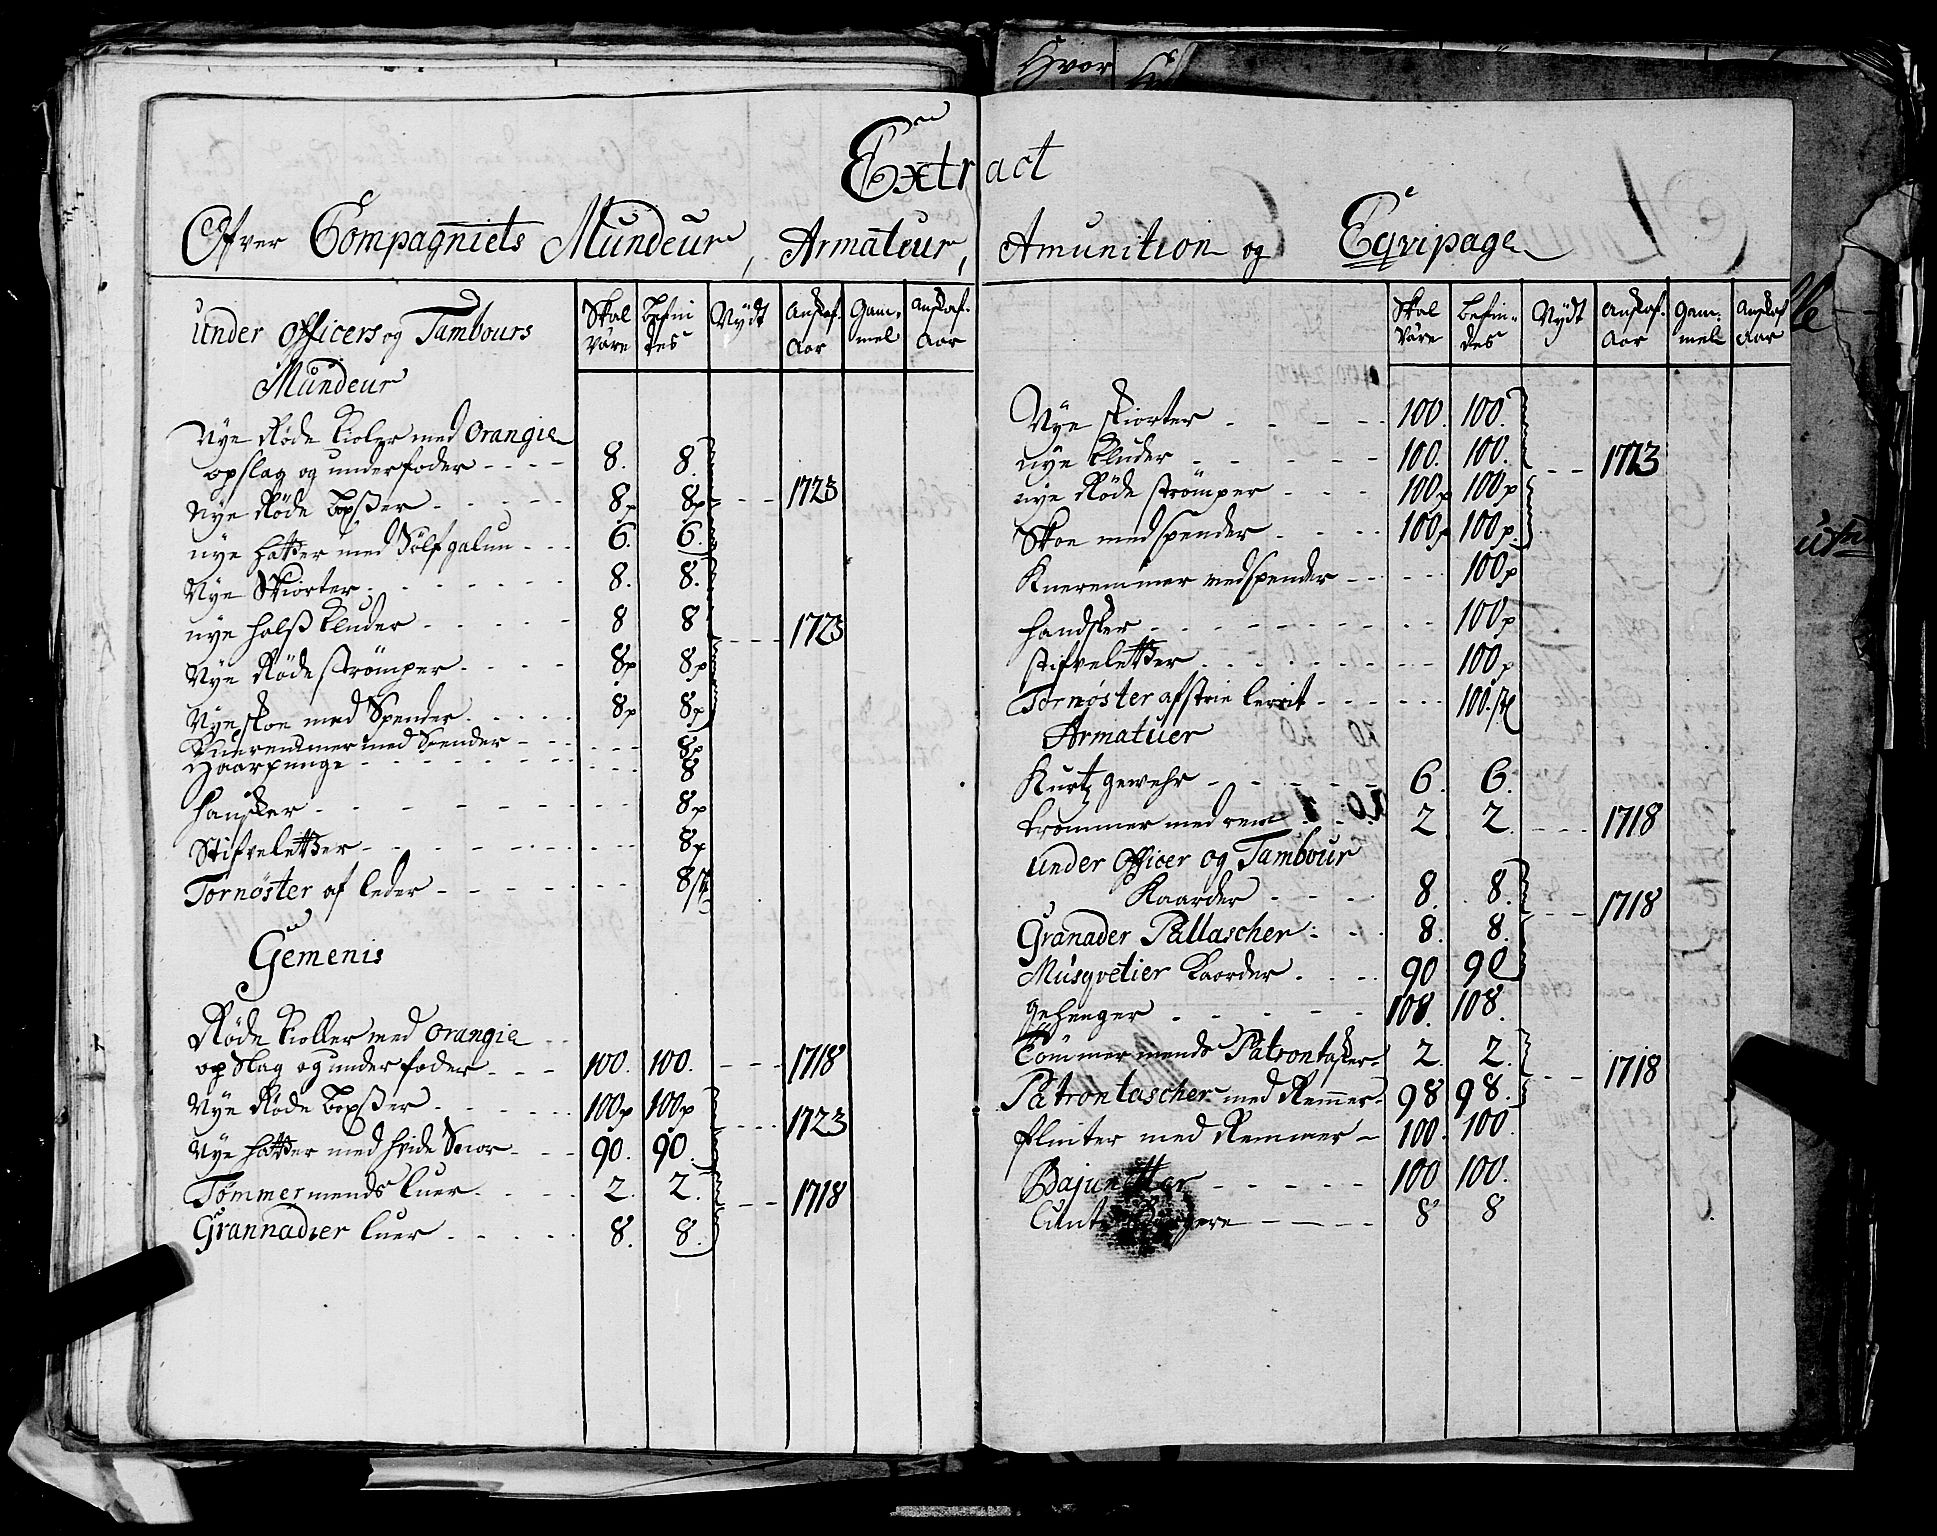 Extract
Ofver Compagniets Mundeur, Armateur, Amunition og Eqvipage
under officers og Tambours
Skal være
befindes
Nydt
Anskaf. Aar
Gammel
Anskaf. Aar
Mundeur
Nye Røde Kioler med Orangie
opslag og underfoder - - - - 8. 8.
Nye Røde boxser - - - - 8p 8p - - - 1723
nye hatter med Sølfgalun - - - 6. 6.
Nye Skiorter - - - - 8. 8.
nye halsß kluder - - - - 8 8 - - - 1723
Nye Røde strømper - - - - 8p 8p
Nye skoe med Spender - - - - 8p 8p
Kneremmer med Spender - - - - 8p
Haarpunge - - - - 8
hansker - - - - 8p
Stifveletter - - - - 8p
Tornøster af leder - - - - 8
Gemenis
Røde Kioller med orangie
opslag og underfoder - - - 100. 100. - - - 1718
Nye Røde boxser - - - - 100p 100p - - - 1723
Nye hatter med hvide Snor - - - 90. 90.
Tømmermends luer - - - - 2. 2. - - - 1718
Grannadier luer - - - - 8. 8.
Skal være
befindes
Nydt
Anskaf. Aar
Gammel
Anskaf Aar
Nye skiorter - - - - 100. 100.
nye kluder - - - - 100. 100. - - - 1723
nye Røde strømper - - - 100p 100p
Skoe med spender - - - 100p 100p.
Kneremmer med spender - - - - 100p
handsker - - - - 100p
stifveletter - - - - 100p
Tornøster af strie lerrit - - - - 100.
Armatuer
Kurtz gewehr - - - - 6. 6.
trommer med rem - - - 2 2. - - - 1718
under officer og Tambour
Kaarder - - - - 8. 8. - - - 1718
Granader Pallascher - - - 8. 8.
Musqvetier Kaarder - - - 90 90
gehenger - - - - 108. 108.
Tømmermends Patrontasker - 2. 2. - - - 1718
Patrontascher med Remmer - 98 98.
flinter med Remmer - 100. 100.
Bajunetter - - - - 100 100.
8 8